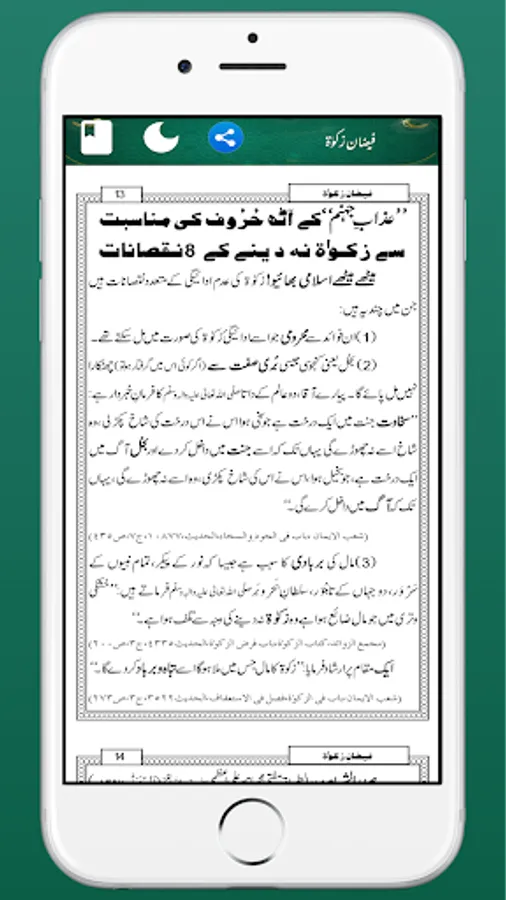 فیضان زکوٰۃ
13 فیضانِ زکوٰۃ
’’عذابِ جہنم‘‘ کے آٹھ حُرُوف کی مناسبت
سے زکوٰۃ نہ دینے کے 8 نقصانات
میٹھے میٹھے اسلامی بھائیو! زکوٰۃ کی عدم ادائیگی کے متعدد نقصانات ہیں
جن میں چند یہ ہیں:
(1) ان فوائد سے محرومی جو اسے ادائیگیٔ زکوٰۃ کی صورت میں مل سکتے تھے۔
(2) بخل یعنی کنجوسی جیسی بُری صفت سے (اگر کوئی اس میں گرفتار ہو تو) چھٹکارا
نہیں مل پائے گا۔ پیارے آقا، دو عالم کے داتا صلی اللہ تعالیٰ علیہ واٰلہ وسلم کا فرمانِ خبردار ہے:
’’سخاوت جنت میں ایک درخت ہے جو سخی ہوا اس نے اس درخت کی شاخ پکڑ لی، وہ
شاخ اسے نہ چھوڑے گی یہاں تک کہ اسے جنت میں داخل کر دے اور بخل آگ میں
ایک درخت ہے، جو بخیل ہوا، اس نے اس کی شاخ پکڑی، وہ اسے نہ چھوڑے گی، یہاں
تک کہ آگ میں داخل کرے گی۔‘‘
(شعب الایمان، باب فی الجود والسخاء، الحدیث، ۱۰۸۷۷، ج۷، ص۴۳۵)
(3) مال کی بربادی کا سبب ہے جیسا کہ نور کے پیکر، تمام نبیوں کے
سَرْوَر، دو جہاں کے تاجْوَر، سلطانِ بَحْر و بَر صلی اللہ تعالیٰ علیہ واٰلہ وسلم فرماتے ہیں: ’’خشکی
وتری میں جو مال ضائع ہوا ہے وہ زکوٰۃ نہ دینے کی وجہ سے تلف ہوا ہے۔‘‘
(مجمع الزوائد، کتاب الزکوٰۃ، باب فرض الزکوٰۃ، الحدیث ۴۳۳۵، ج۳، ص۲۰۰)
ایک مقام پر ارشاد فرمایا: ’’زکوٰۃ کا مال جس میں ملا ہوگا اسے تباہ و برباد کر دے گا۔‘‘
(شعب الایمان، باب فی الزکوٰۃ، فصل فی الاستعفاف، الحدیث ۳۵۲۲، ج۳، ص۲۷۳)
14 فیضانِ زکوٰۃ